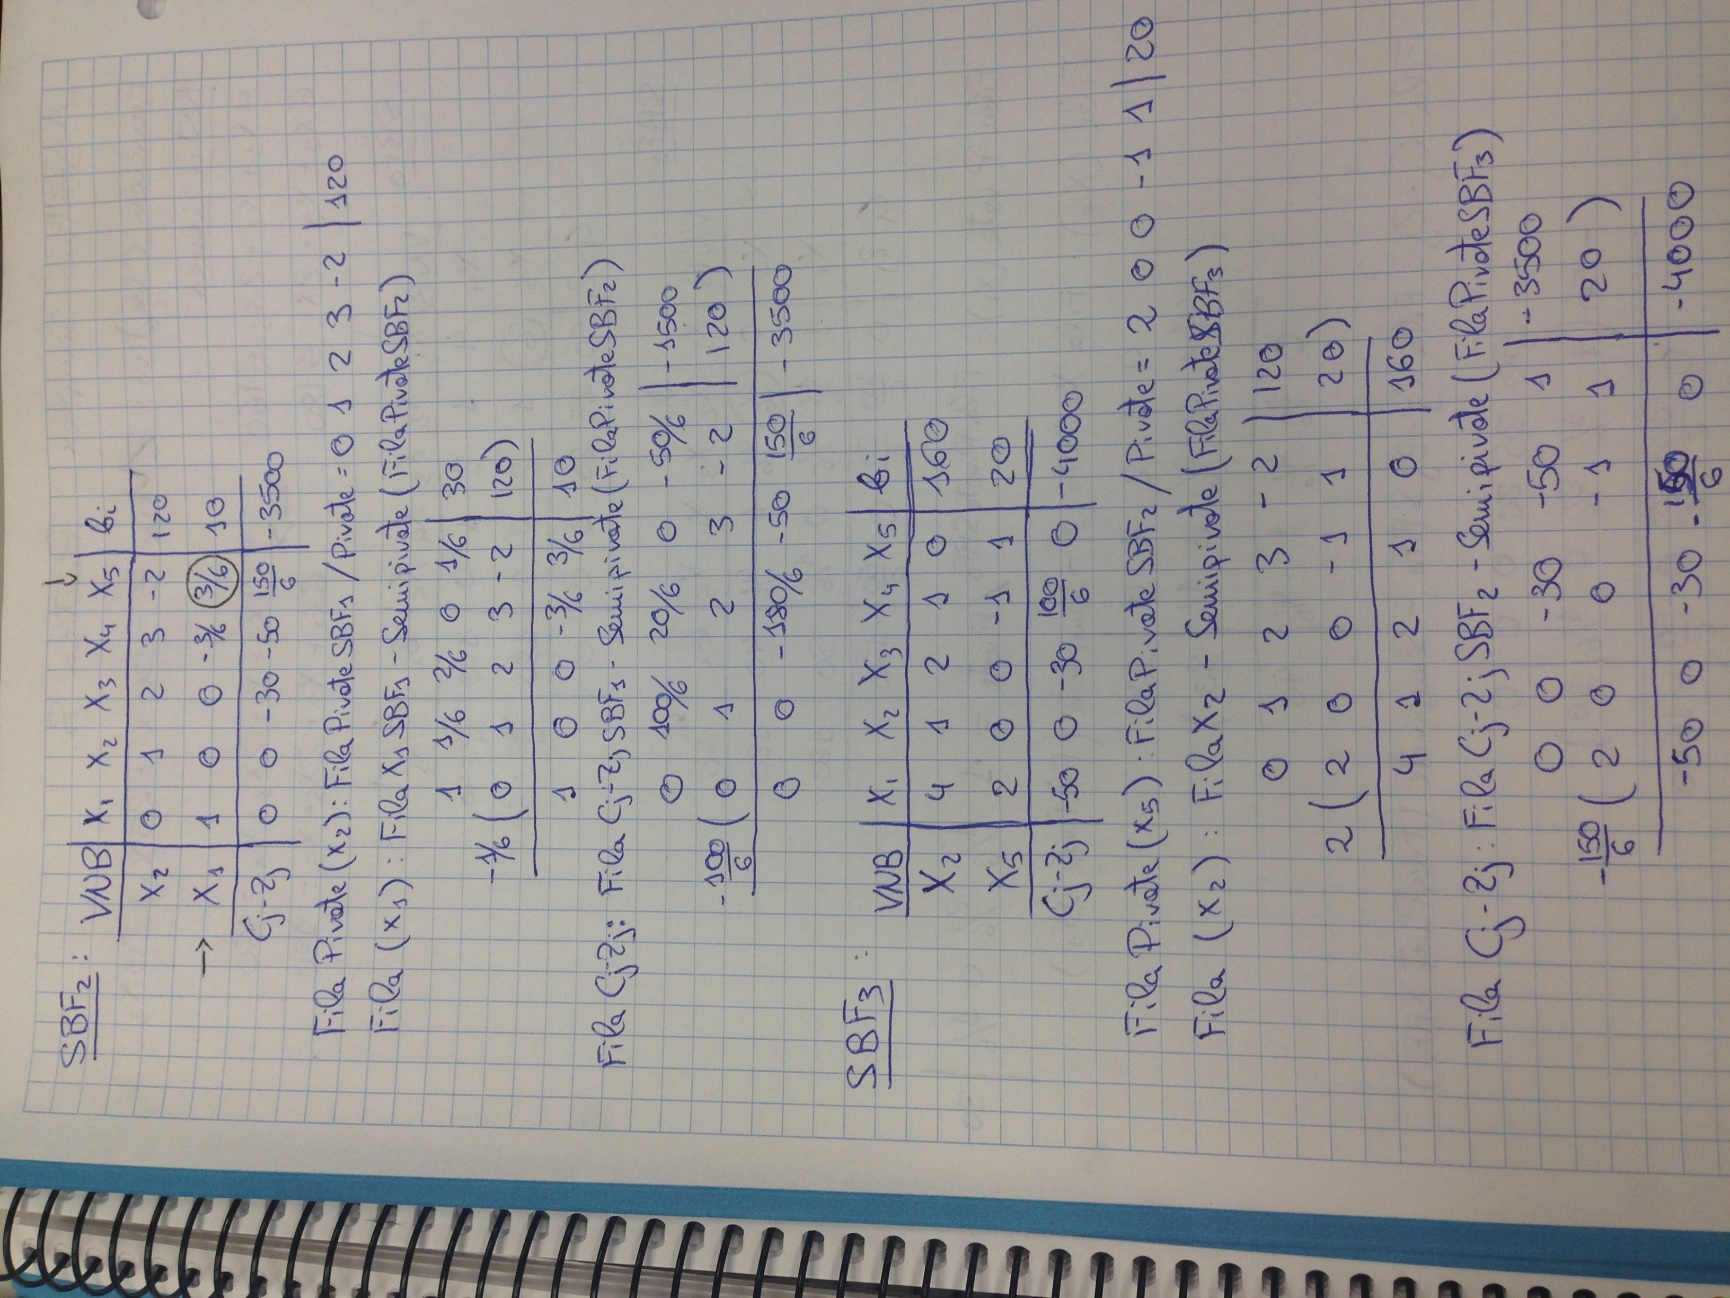 SBF₂:
VNB | X₁ X₂ X₃ X₄ X₅ | bi
X₂ | 0 1 2 3 -2 | 120
→ X₁ | 1 0 0 -3/6 3/6 | 10
Cj-Zj | 0 0 -30 -50 150/6 | -3500
Fila Pivote (x₂): Fila Pivote SBF₁ / Pivote = 0 1 2 3 -2 | 120
Fila (x₁): Fila X₁ SBF₁ - Semipivote (Fila Pivote SBF₂)
1 1/6 2/6 0 1/6 | 30
-1/6 ( 0 1 2 3 -2 | 120)
1 0 0 -3/6 3/6 | 10
Fila Cj-Zj: Fila Cj-Zj SBF₁ - Semipivote (Fila Pivote SBF₂)
0 100/6 20/6 0 -50/6 | -1500
-100/6 ( 0 1 2 3 -2 | 120 )
0 0 -180/6 -50 150/6 | -3500
SBF₃:
VNB | X₁ X₂ X₃ X₄ X₅ | bi
X₂ | 4 1 2 1 0 | 160
X₅ | 2 0 0 -1 1 | 20
Cj-Zj | -50 0 -30 100/6 0 | -4000
Fila Pivote (x₅): Fila Pivote SBF₂ / Pivote = 2 0 0 -1 1 | 20
Fila (x₂): Fila X₂ - Semipivote (Fila Pivote SBF₃)
0 1 2 3 -2 | 120
2 ( 2 0 0 -1 1 | 20)
4 1 2 1 0 | 160
Fila Cj-Zj: Fila Cj-Zj SBF₂ - Semipivote (Fila Pivote SBF₃)
0 0 -30 -50 1 | -3500
-150/6 ( 2 0 0 -1 1 | 20 )
-50 0 -30 -150/6 0 | -4000